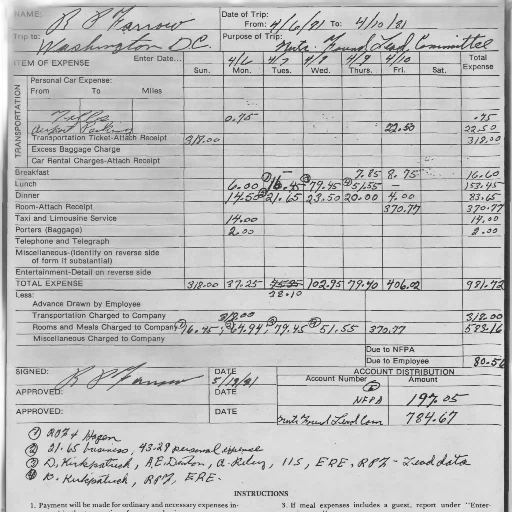 NAME: R P Farrow Date of Trip: From: 4/6/81 To: 4/10/81
Trip to: Washington D.C. Purpose of Trip: Found Lead Committee
ITEM OF EXPENSE Enter Date... Sun. 4/6 Mon. 4/7 Tues. Wed. 4/9 Thurs. 4/10 Fri. Sat. Total Expense
TRANSPORTATION
Personal Car Expense:
From To Miles
Tolls 0.75 .75
airport Parking 22.50 22.50
Transportation Ticket-Attach Receipt 318.00 318.00
Excess Baggage Charge
Car Rental Charges-Attach Receipt
Breakfast 7.85 8.75 16.60
Lunch 6.00 ① 16.45 ③ 79.45 ④ 51.55 — 153.45
Dinner 14.50 ② 21.65 23.50 20.00 4.00 83.65
Room-Attach Receipt 370.77 370.77
Taxi and Limousine Service 14.00 14.00
Porters (Baggage) 2.00 2.00
Telephone and Telegraph
Miscellaneous-(Identify on reverse side
of form if substantial)
Entertainment-Detail on reverse side
TOTAL EXPENSE 318.00 37.25 102.95 79.40 406.02 981.72
38.10
Less:
Advance Drawn by Employee
Transportation Charged to Company 318.00 318.00
Rooms and Meals Charged to Company ① 16.45, ② 64.94 ③ 79.45 ④ 51.55 370.77 583.16
Miscellaneous Charged to Company
Due to NFPA
Due to Employee 80.56
SIGNED: R P Farrow DATE 5/13/81 ACCOUNT DISTRIBUTION
Account Number Amount
APPROVED: DATE NFPA 197.05
APPROVED: DATE Found Lead Com 784.67
① RPF & Hagen
② 21.65 business, 43.29 personal expense
③ D. Kirkpatrick, A.E. Denton, ERE, RPF - Lead data
④ D. Kirkpatrick, RPF, ERE.
INSTRUCTIONS
1. Payment will be made for ordinary and necessary expenses in- 3. If meal expenses includes a guest, report under "Enter-